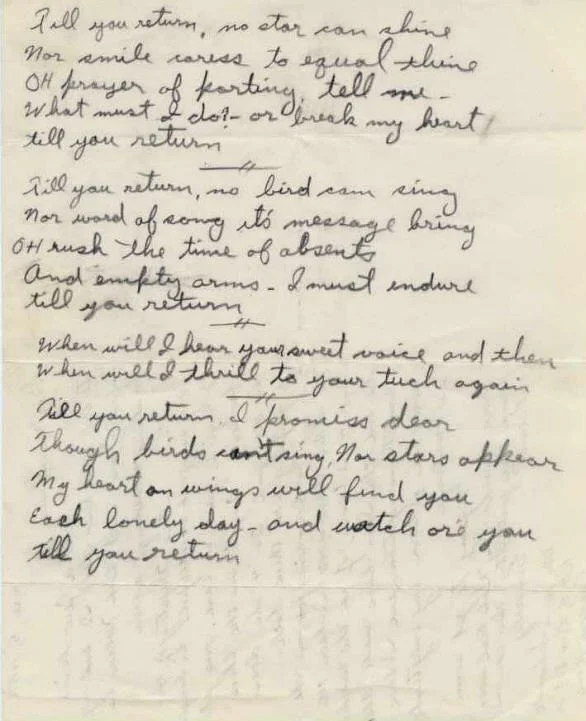 Till you return, no star can shine
Nor smile caress to equal thine
OH prayer of parting, tell me -
What must I do?- or break my heart
till you return
Till you return, no bird can sing
Nor word of song it's message bring
OH rush the time of absents
And empty arms - I must endure
till you return
When will I hear your sweet voice and then
When will I thrill to your tuch again
Till you return, I promiss dear
Though birds can't sing, Nor stars appear
My heart on wings will find you
Each lonely day - and watch ore you
till you return